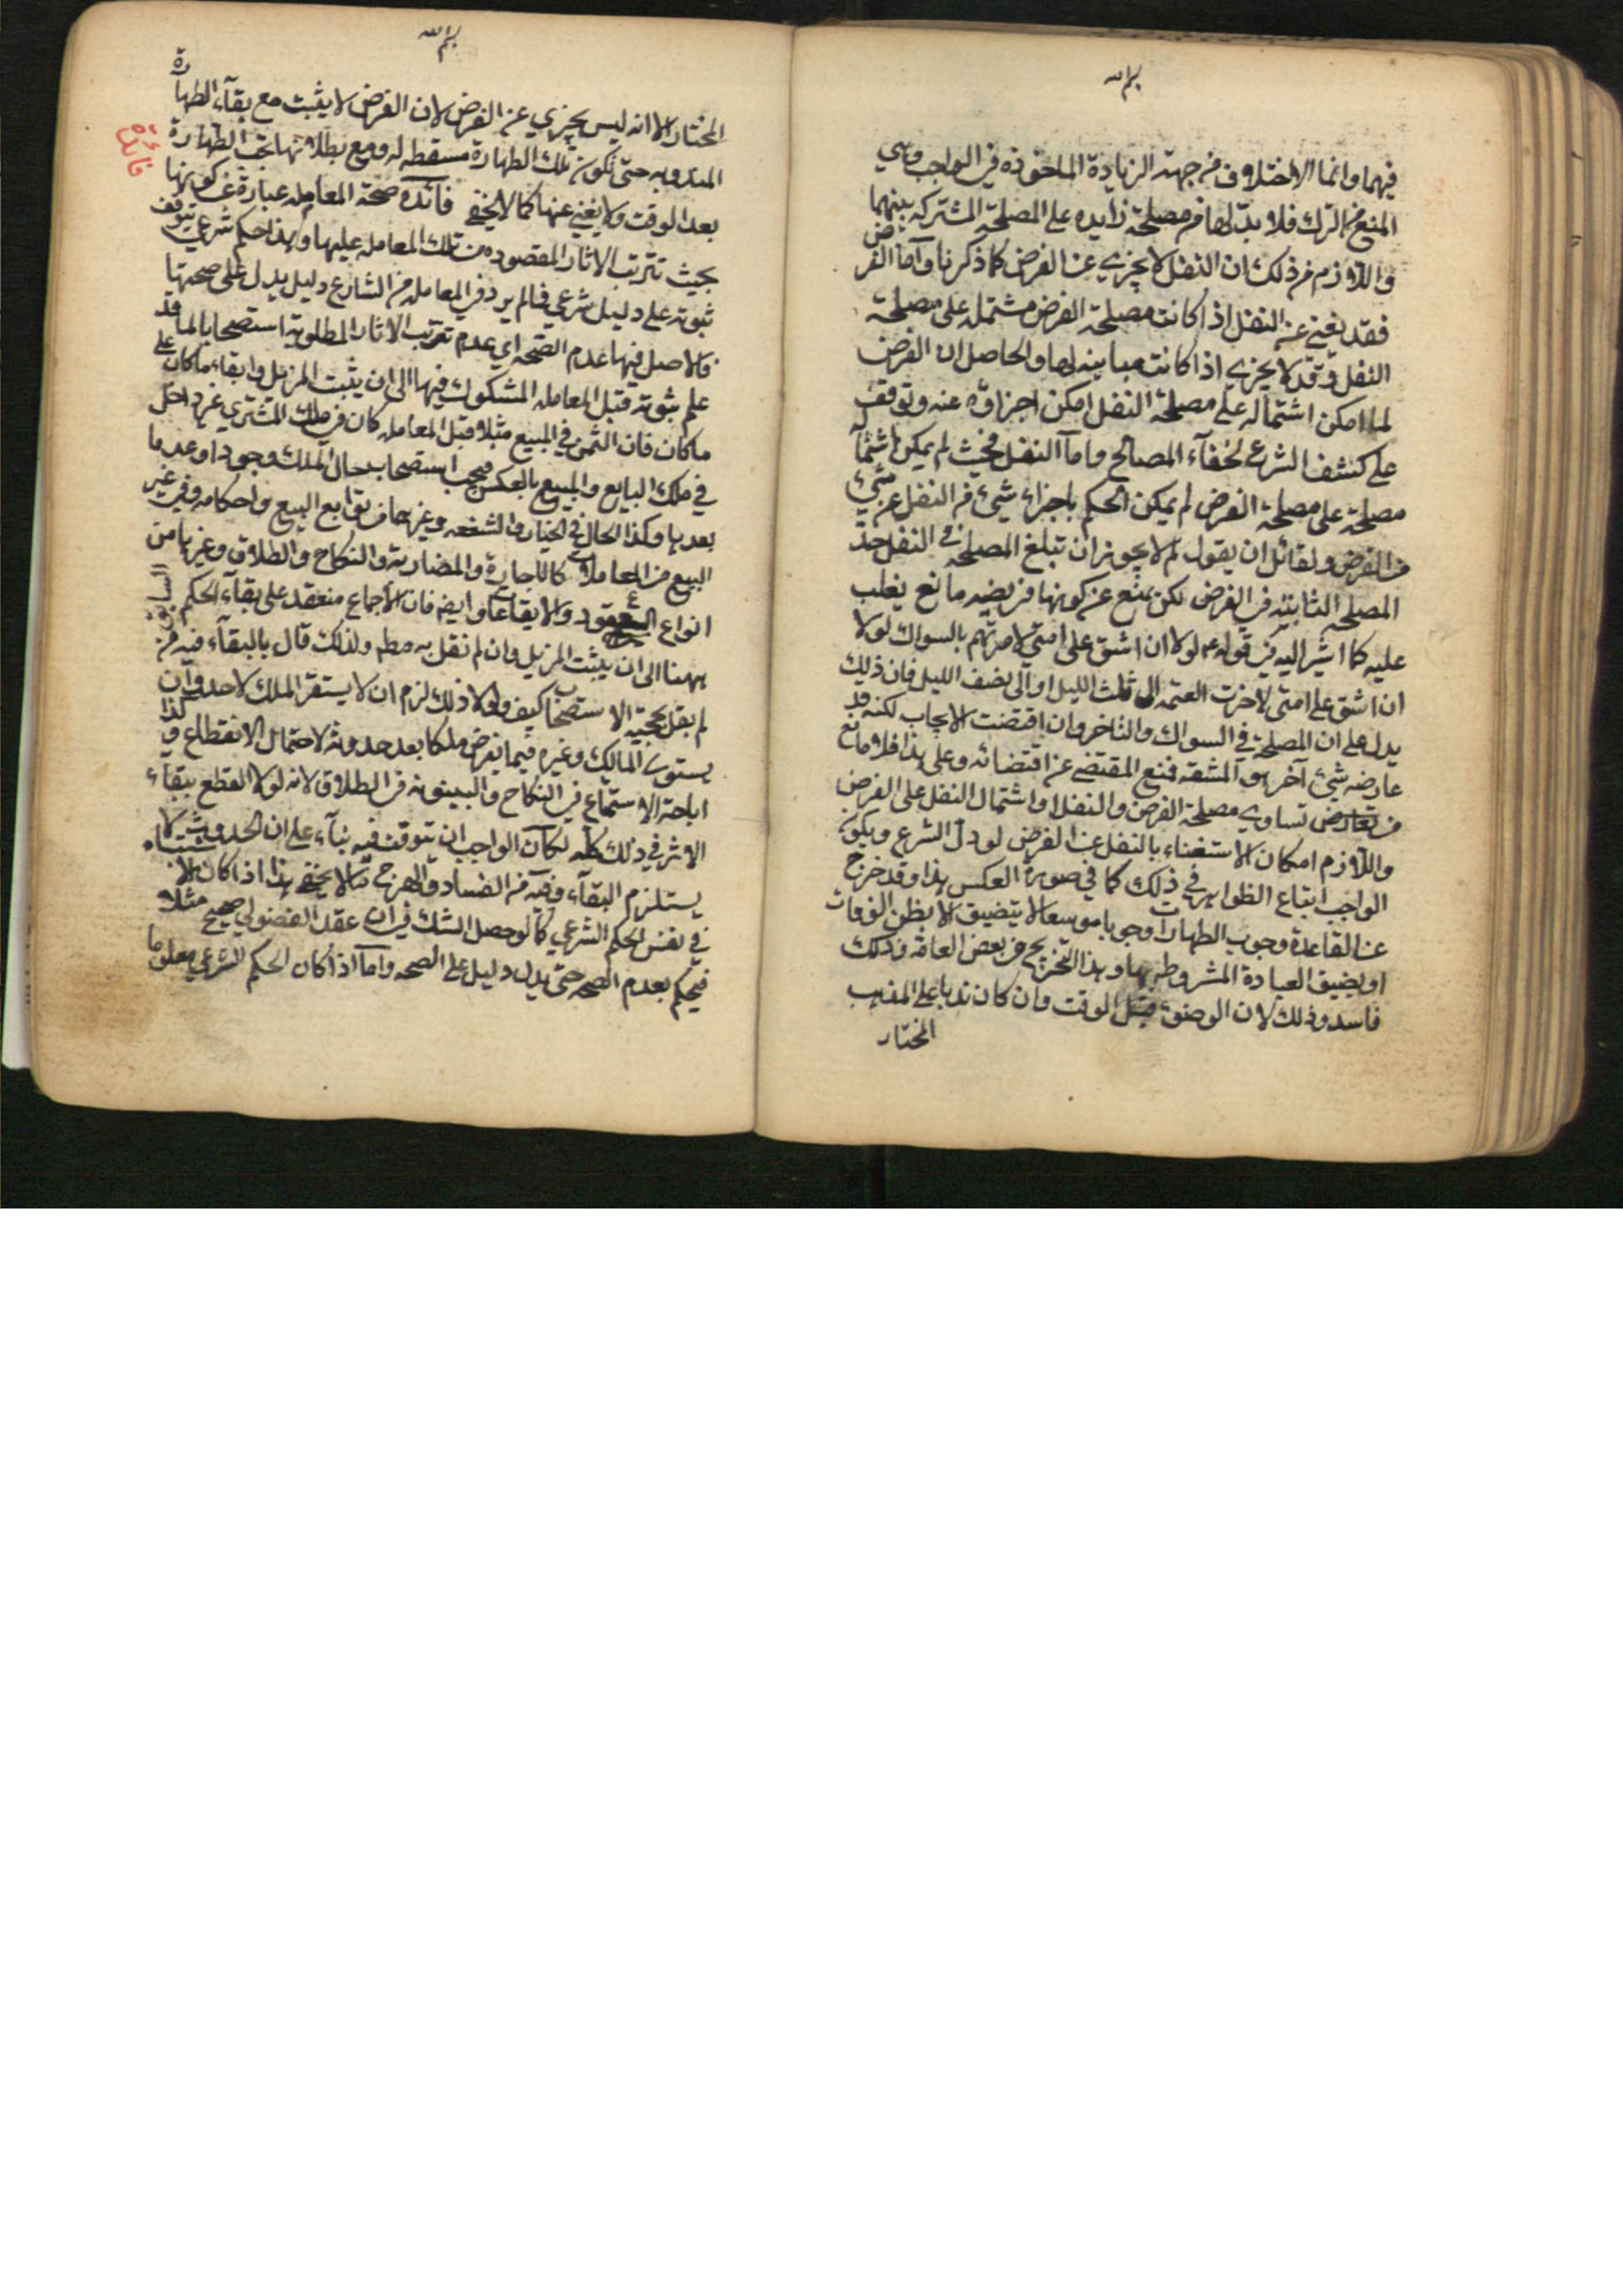 بسم الله
فيهما وانما الاختلاف من جهة الزيادة الماخوذة في الواجب وهي
المنع من الترك فلا بد لها من مصلحة زايده على المصلحة المشتركه بينهما
واللازم من ذلك ان النفل لا يجزي عن الفرض كما ذكرنا واما الفرض
فقد يغني عن النفل اذا كانت مصلحة الفرض مشتمله على مصلحة
النفل وقد لا يجزي اذا كانت مباينه لها والحاصل ان الفرض
لما امكن اشتماله على مصلحة النفل امكن اجزاؤه عنه وتوقف
على كشف الشرع لخفآء المصالح واما النفل فحيث لم يمكن اشتماله
مصلحة على مصلحة الفرض لم يمكن الحكم باجزاء شيء من النفل عن شيء
من الفرض ولقائل ان يقول لم لا يجوز ان تبلغ المصلحه في النفل حد
المصلحه الثابته في الفرض لكن يمنع عن كونها فريضه مانع يغلب
عليه كما اشير اليه في قوله ع لولا ان اشق على امتي لامرتهم بالسواك لولا
ان اشق على امتي لاخرت العتمه الى ثلث الليل او الى نصف الليل فان ذلك
يدل على ان المصلحة في السواك والتاخر وان اقتضت الايجاب لكنه قد
عارضه شيء آخر هو المشقه فمنع المقتضي عن اقتضائه وعلى هذا فلا مانع
من تعارض تساوي مصلحة الفرض والنفل او اشتمال النفل على الفرض
واللازم امكان الاستغناء بالنفل عن الفرض لو دل الشرع ويكون
الواجب اتباع الظواهر في ذلك كما في صورة العكس هذا وقد خرج
عن القاعدة وجوب الطهارات وجوبا موسعا لا يتضيق الا بظن الوفات
او يضيق العبادة المشروطه بها وهذا التخريج من بعض العامه وذلك
فاسد وذلك لان الوضوء قبل الوقت وان كان ندبا على المذهب
المختار
بسم الله
المختار الا انه ليس يجزي عن الفرض لان الفرض لا يثبت مع بقآء الطهارة
المندوبه حتى تكون تلك الطهارة مسقطه له ومع بطلانها تجب الطهارة
فائدة
بعد الوقت ولا يغني عنها كما لا يخفى فائدة صحة المعامله عبارة عن كونها
بحيث تترتب الاثار المقصوده من تلك المعامله عليها وهذا حكم شرعي يتوقف
ثبوته على دليل شرعي فما لم يرد في المعامله من الشارع دليل يدل على صحتها
فالاصل فيها عدم الصحه اي عدم ترتب الاثار المطلوبة استصحابا لما قد
علم ثبوته قبل المعامله المشكوك فيها الى ان يثبت المزيل وابقاء ما كان على
ما كان فان الثمن في المبيع مثلا قبل المعامله كان في ملك المشتري غير داخل
في ملك البايع والمبيع بالعكس فيجب استصحاب حال الملك وجودا وعدما
بعدها وكذا الحال في الخيار والشفعه وغيرها من توابع البيع واحكامه وفي غير
البيع من المعاملات كالاجارة والمضاربة والنكاح والطلاق وغيرها من
انواع العقود والايقاعات وايضا فان الاجماع منعقد على بقآء الحكم السابق
ههنا الى ان يثبت المزيل وان لم نقل به مطم ولذلك قال بالبقآء فيه من
لم يقل بحجية الاستصحاب كيف ولولا ذلك لزم ان لا يستقر الملك لاحد وان
يستوي المالك وغيره فيما يفرض ملكا بعد حدوثه لاحتمال الانقطاع وكذا
اباحة الاستمتاع في النكاح والبينونه في الطلاق لانه لولا القطع ببقآء
الاثر في ذلك كله لكان الواجب ان نتوقف فيه بنآء على ان الحدوث لا
يستلزم البقآء وفيه من الفساد والهرج ما لا يخفى هذا اذا كان الاشتباه
في نفس الحكم الشرعي كما لو حصل الشك في ان عقد الفضولي صحيح مثلا
فيحكم بعدم الصحه حتى يدل دليل على الصحه واما اذا كان الحكم الشرعي معلوما